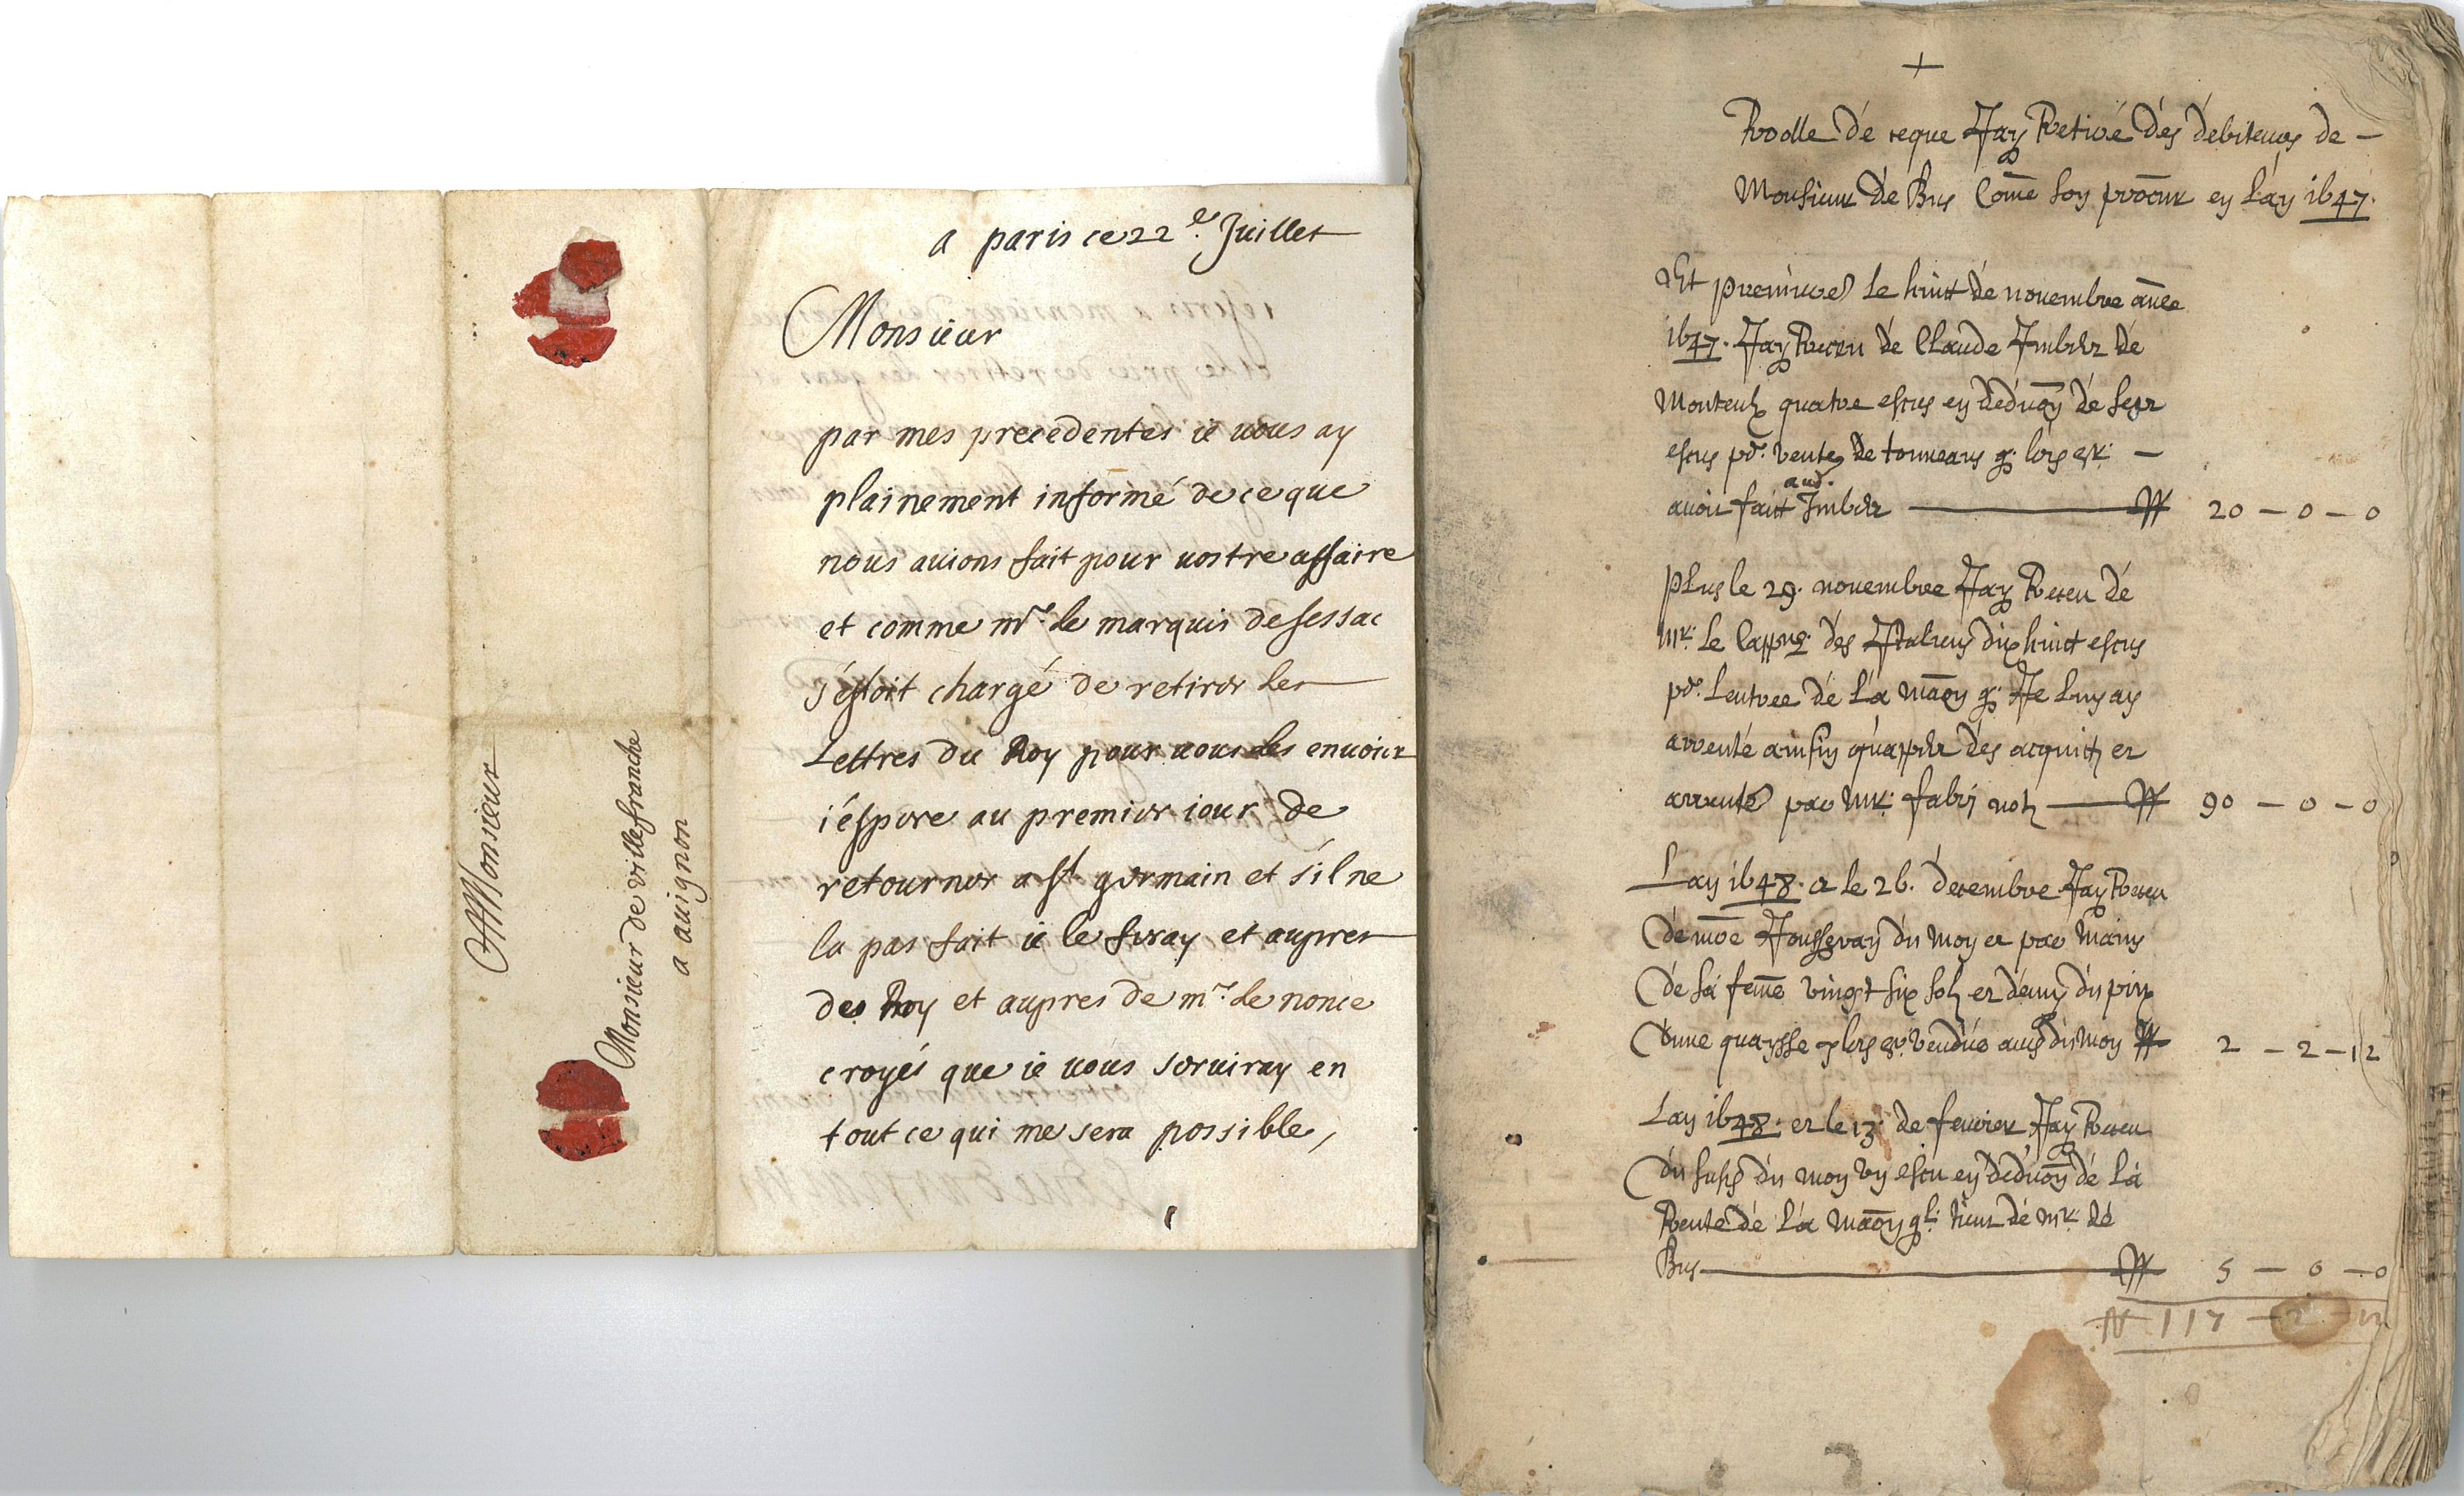 A Monsieur
Monsieur de villefranche
a auignon
a paris ce 22e Juillet
Monsieur
par mes precedentes ie uous ay
plainement informé de ce que
nous auions fait pour uostre affaire
et comme mr. le marquis de sessac
s'estoit chargé de retirer les
Lettres du Roy pour uous les enuoier
i'éspere au premier iour de
retourner a st germain et s'il ne
la pas fait ie le feray et aupres
de Roy et aupres de mr. le nonce
croyés que ie uous seruiray en
tout ce qui me sera possible,
+
Roolle de ceque Jay Retiré des debiteurs de —
Monsieur de Bus Cōme son procur en Lan 1647.
Et premiere le huict de nouembre añee
1647. Jay Receu de Claude Imbert de
Monteulx quatre escus en deduōn de sept
escus pr. vente de tonneaus lors
aud.
auoir faict Imbert 20 — 0 — 0
Plus le 29. nouembre Jay Receu de
Mr. le des Italiens dix huict escus
pr. Lentree de La māon q. Je Luy ay
arrenté ainsin qu'appert des acquicts et
par Mr. fabri not 90 — 0 — 0
Lan 1648. et le 26. decembre Jay Receu
de du moy et par mains
de sa feme vingt six sols et demy du prix
dune quaysse vendue du moy 2 — 2 — 12
Lan 1648. et le 13. de feurier Jay Receu
du susd du moy un escu en deduōn de La
Rente de La māon tient de Mr. de
Bus 5 — 0 — 0
117 — 2 — 12